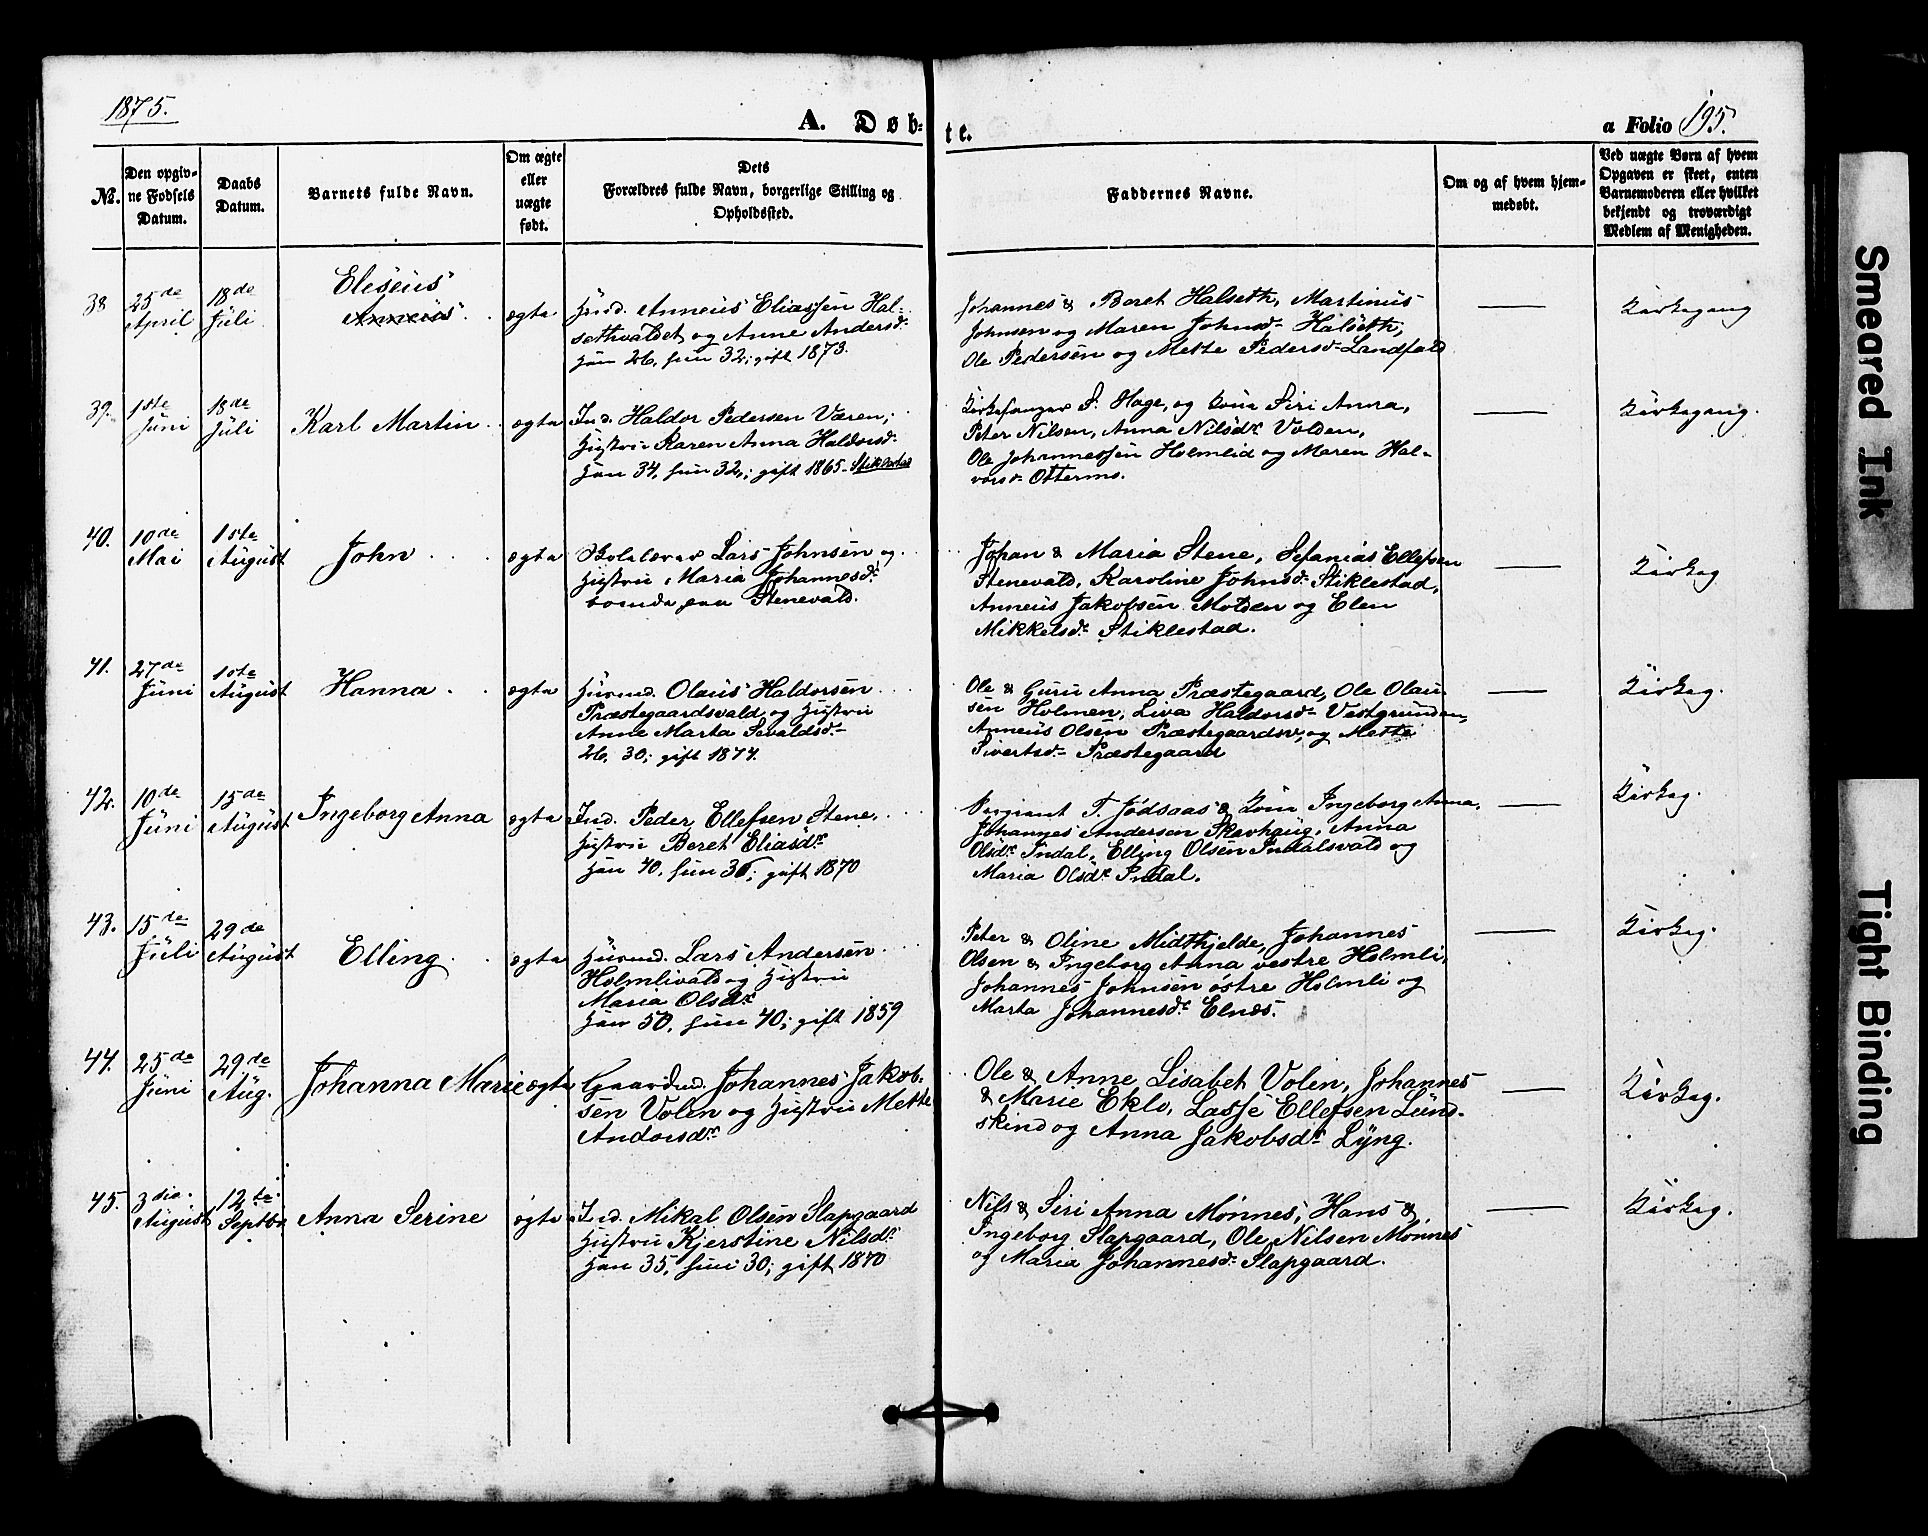 1875.
A. Døb-
te.
a Folio 195.
No.
Den opgiv-
ne Fødsels
Datum.
Daabs
Datum.
Barnets fulde Navn.
Om ægte
eller
uægte
født.
Dets
Forældres fulde Navn, borgerlige Stilling og
Opholdssted.
Faddernes Navne.
Om og af hvem hjem-
medøbt.
Ved uægte Børn af hvem
Opgaven er skeet, enten
Barnemoderen eller hvilket
bekjendt og troværdigt
Medlem af Menigheden.
38
25de
April
18de
Juli
Eliseus
Anneus
ægte
Anneus Eliassen Hal-
sethvaldet og Anne Andersd.
Han 26, hun 32; gift 1873.
Johannes & Beret Halseth, Martinus
Johnsen og Maren Johnsd. Halseth,
Ole Pedersen og Mette Pedersd. Landfald
Kirkegang
39.
1ste
Juni
18de
Juli
Karl Martin
ægte
Ind. Haldor Pedersen Væren,
Hustru Karen Anna Haldorsd.
Han 34, hun 32; gift 1865. Stiklestad
Kirkesanger S. Hage, og Kone Siri Anna,
Peter Nilsen, Anna Nilsdr. Volden,
Ole Johannessen Holmlid og Maren Hal-
vorsd. Ottermo.
Kirkegang.
40.
10de
Mai
1ste
August
John
ægte
Skolelærer Lars Johnsen og
Hustru Maria Johannesd.
boende paa Stenevald.
Johan & Maria Stene, Sefanias Ellefsen
Stenevald, Karoline Johnsd. Stiklestad,
Anneus Jakobsen Molden og Elen
Mikkelsd. Stiklestad.
Kirkeg
41.
27de
Juni
1ste
August
Hanna
ægte
Huusmd. Olaus Haldorsen
Præstegaardsvald og Hustru
Anne Marta Sevaldsd.
26, 30; gift 1874.
Ole & Guru Anna Præstegaard, Ole Olau-
sen Holmen, Liva Haldorsd. Vestgrunden,
Anneus Olsen Præstegaardsv, og Mette
Sivertsd. Præstegaard
Kirkeg.
42.
10de
Juni
15de
August
Ingeborg Anna
ægte
Ind. Peder Ellefsen Stene,
Hustru Beret Eliasdr.
Han 40, hun 36; gift 1870
Sergiant T. Jødsaas & Kone Ingeborg Anna,
Johannes Andersen Skavhaug, Anna
Olsdr. Indal, Elling Olsen Indalsvald og
Maria Olsdr. Indal.
Kirkeg.
43.
15de
Juli
29de
August
Elling
ægte
Huusmd. Lars Andersen
Holmlivald og Hustru
Maria Olsdr.
Han 50, hun 40; gift 1859
Peter & Oline Midthjelde, Johannes
Olsen & Ingeborg Anna vestre Holmli,
Johannes Johnsen østre Holmli og
Marta Johannesdr. Elnes.
Kirkeg.
44.
25de
Juni
29de
Aug.
Johanna Marie
ægte
Gaardmd. Johannes Jakob-
sen Volen og Hustru Mette
Andorsdr.
Ole & Anne Lisabet Volen, Johannes
& Marie Eklo, Lasse Ellefsen Lund-
skind og Anna Jakobsdr. Lyng.
Kirkeg.
45.
3die
August
12te
Septbr.
Anna Serine
ægte
Ind. Mikal Olsen Slapgaard
Hustru Kjerstine Nilsd.
Han 35, hun 30; gift 1870
Nils & Siri Anna Mønnes, Hans &
Ingeborg Slapgaard, Ole Nilsen Mønnes
og Maria Johannesd. Slapgaard.
Kirkeg.
Smeared Ink
Tight Binding